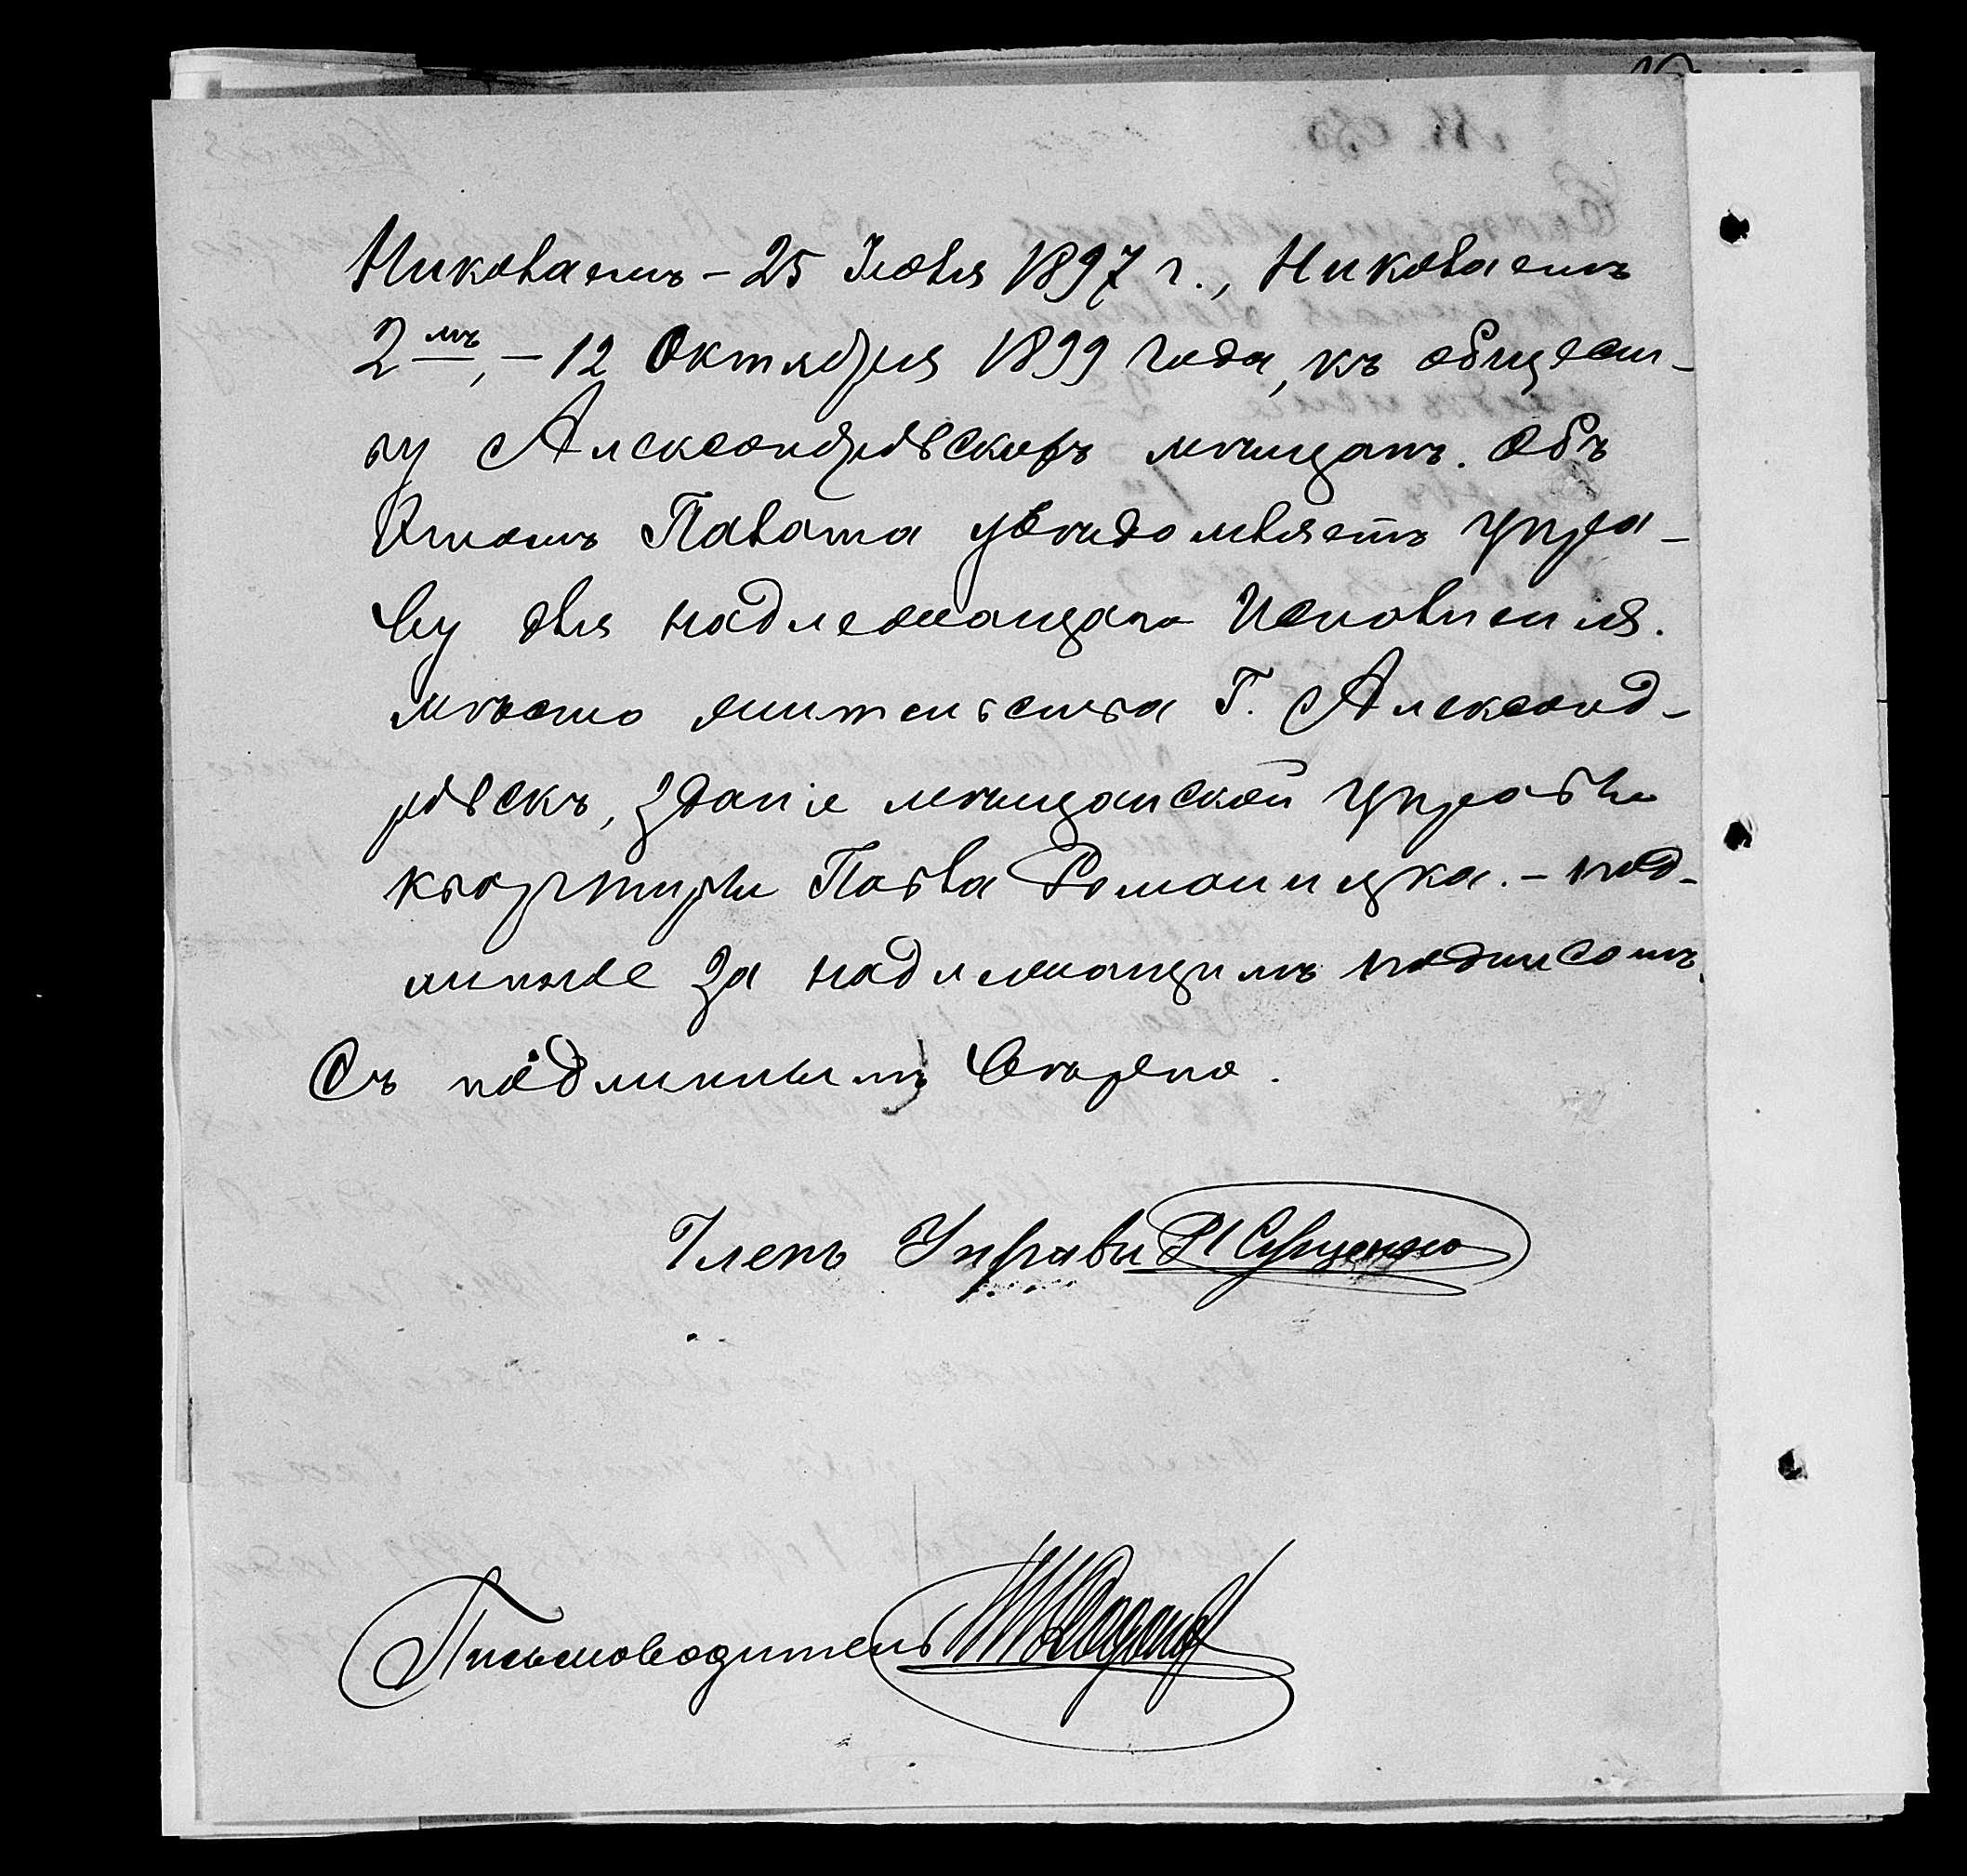 Николаемъ – 25 Іюля 1897 г., Николаемъ
2мъ, – 12 Октября 1899 года, къ общест-
ву Александровскихъ мѣщанъ. Объ
этомъ Палата увѣдомляетъ упра-
ву для надлежащаго исполненія.
мѣсто жительства Г. Александ-
ровскъ, зданіе мѣщанской управы
квартиры Павла Романицка. – под-
линное за надлежащимъ подписомъ.
Съ подлиннымъ вѣрно.
Членъ Управы
Письмоводитель